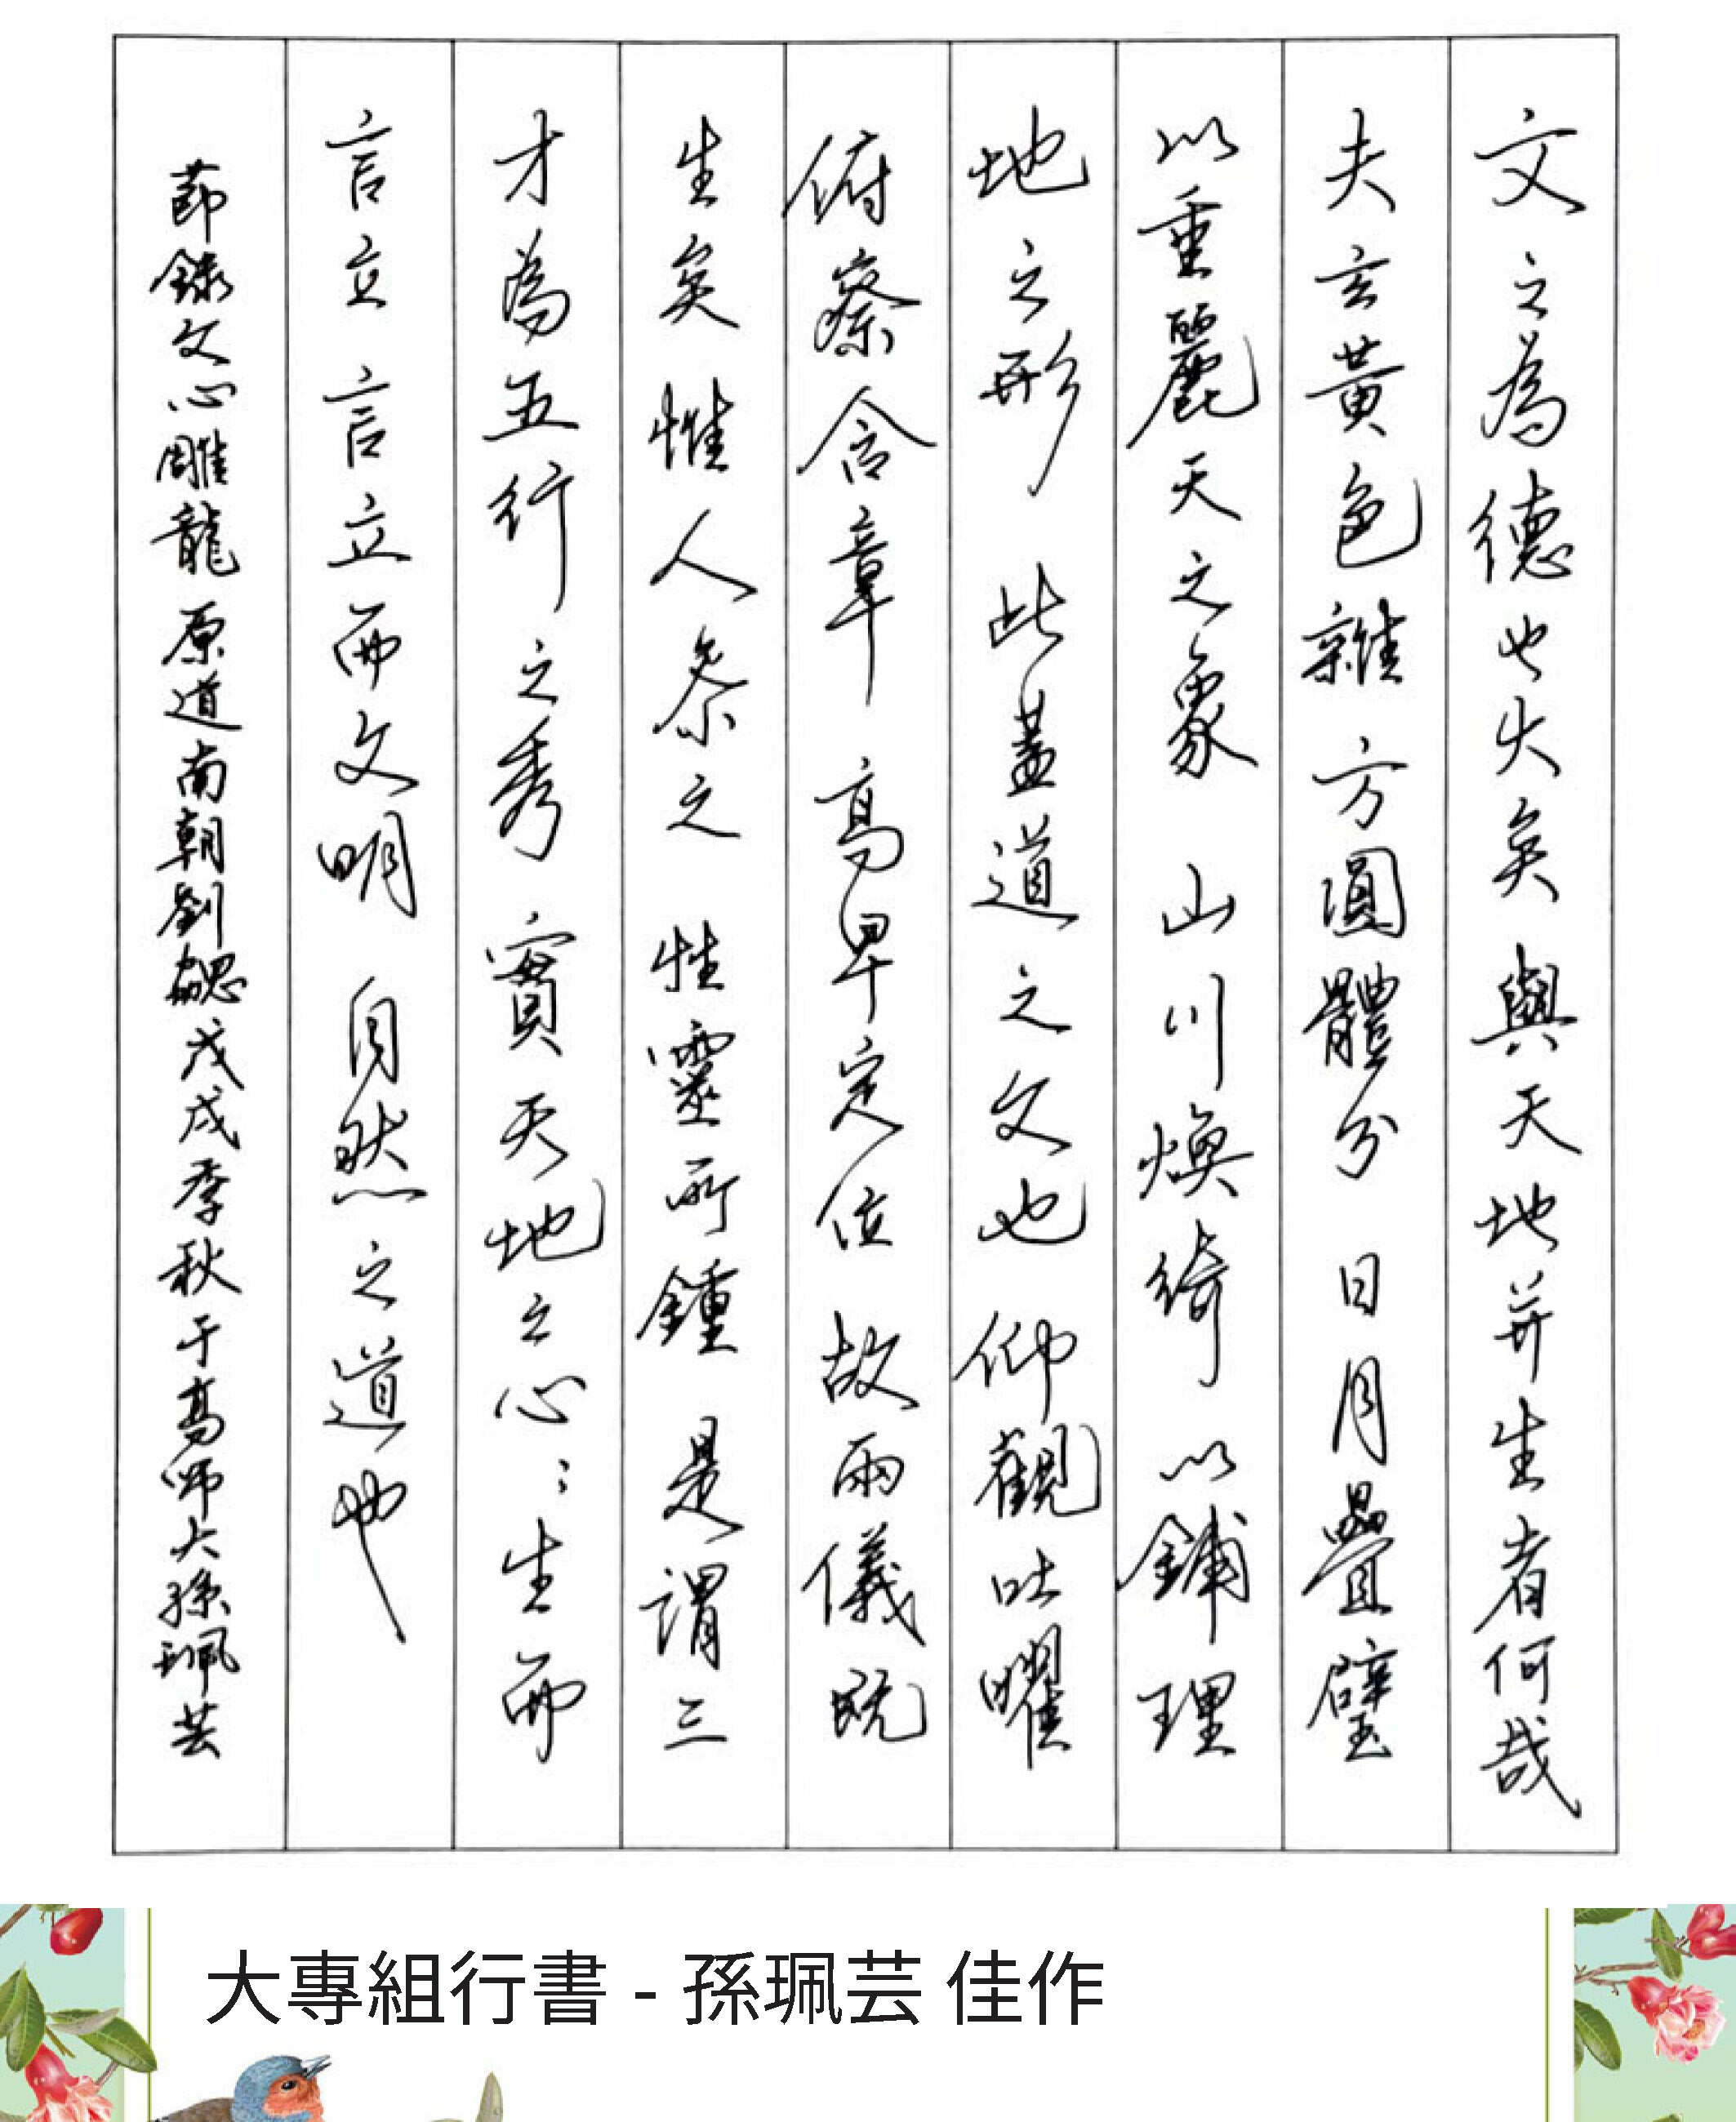 文之為德也大矣與天地并生者何哉
夫玄黃色雜方圓體分日月疊璧
以重麗天之象山川煥綺以鋪理
地之形此蓋道之文也仰觀吐曜
俯察含章高卑定位故兩儀既
生矣惟人參之性靈所鍾是謂三
才為五行之秀實天地之心〻生而
言立言立而文明自然之道也
節錄文心雕龍原道南朝劉勰戊戌季秋于高師大孫珮芸
大專組行書 - 孫珮芸 佳作